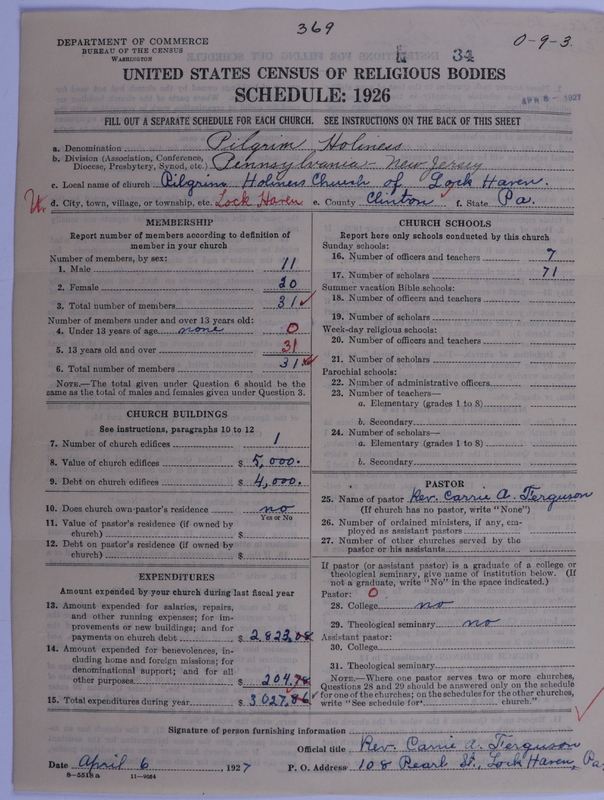 369
DEPARTMENT OF COMMERCE
BUREAU OF THE CENSUS
WASHINGTON
34
0-9-3
UNITED STATES CENSUS OF RELIGIOUS BODIES
SCHEDULE: 1926
APR 8 - 1927
FILL OUT A SEPARATE SCHEDULE FOR EACH CHURCH. SEE INSTRUCTIONS ON THE BACK OF THIS SHEET
a. Denomination Pilgrim Holiness
b. Division (Association, Conference, Diocese, Presbytery, Synod, etc.) Pennsylvania - New Jersey
c. Local name of church Pilgrim Holiness Church of Lock Haven.
d. City, town, village, or township, etc. Lock Haven e. County Clinton f. State Pa.
MEMBERSHIP
Report number of members according to definition of
member in your church
Number of members, by sex:
1. Male 11
2. Female 20
3. Total number of members 31
Number of members under and over 13 years old:
4. Under 13 years of age none 0
5. 13 years old and over 31
6. Total number of members 31
NOTE.—The total given under Question 6 should be the
same as the total of males and females given under Question 3.
CHURCH BUILDINGS
See instructions, paragraphs 10 to 12
7. Number of church edifices 1
8. Value of church edifices $ 5,000.
9. Debt on church edifices $ 4,000.
10. Does church own pastor's residence no
Yes or No
11. Value of pastor's residence (if owned by
church) $
12. Debt on pastor's residence (if owned by
church) $
EXPENDITURES
Amount expended by your church during last fiscal year
13. Amount expended for salaries, repairs,
and other running expenses; for im-
provements or new buildings; and for
payments on church debt $ 2,823.08
14. Amount expended for benevolences, in-
cluding home and foreign missions; for
denominational support; and for all
other purposes $ 204.78
15. Total expenditures during year $ 3027.86
CHURCH SCHOOLS
Report here only schools conducted by this church
Sunday schools:
16. Number of officers and teachers 7
17. Number of scholars 71
Summer vacation Bible schools:
18. Number of officers and teachers
19. Number of scholars
Week-day religious schools:
20. Number of officers and teachers
21. Number of scholars
Parochial schools:
22. Number of administrative officers
23. Number of teachers—
a. Elementary (grades 1 to 8)
b. Secondary
24. Number of scholars—
a. Elementary (grades 1 to 8)
b. Secondary
PASTOR
25. Name of pastor Rev. Carrie A. Ferguson
(If church has no pastor, write "None")
26. Number of ordained ministers, if any, em-
ployed as assistant pastors
27. Number of other churches served by the
pastor or his assistants
If pastor (or assistant pastor) is a graduate of a college or
theological seminary, give name of institution below. (If
not a graduate, write "No" in the space indicated.)
Pastor: 0
28. College no
29. Theological seminary no
Assistant pastor:
30. College
31. Theological seminary
NOTE.—Where one pastor serves two or more churches,
Questions 28 and 29 should be answered only on the schedule
for one of the churches; on the schedules for the other churches,
write "See schedule for church."
Signature of person furnishing information
Official title Rev. Carrie A. Ferguson
Date April 6 1927 P. O. Address 108 Pearl St., Lock Haven, Pa
8-5518a 11-9064